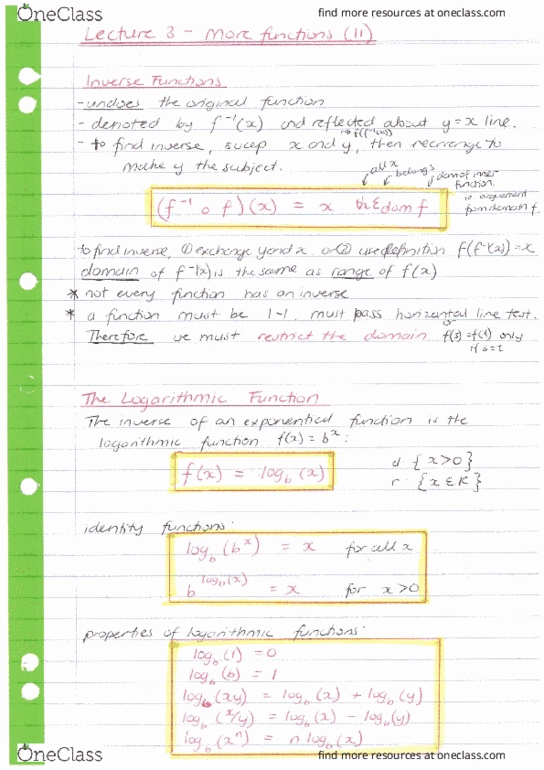 OneClass
find more resources at oneclass.com
Lecture 3 - More functions (11)
Inverse Functions
- undoes the original function
- denoted by f⁻¹(x) and reflected about y=x line.
→ f(f⁻¹(x))
- to find inverse, swap x and y, then rearrange to
make y the subject.
all x
belongs
dom of inner
function.
(f⁻¹ o f)(x) = x ∀x∈dom f
ie arguement
from domain f.
to find inverse, ① exchange y and x or ② use definition f(f⁻¹(x))=x
domain of f⁻¹(x) is the same as range of f(x)
* not every function has an inverse
* a function must be 1-1, must pass horizontal line test.
Therefore we must restrict the domain f(s)=f(t) only
if s=t
The Logarithmic Function
The inverse of an exponential function is the
logarithmic function f(x) = bˣ:
f(x) = log_b (x)
d {x>0}
r {x∈R}
identity functions:
log_b (bˣ) = x for all x
b^log_b(x) = x for x>0
properties of logarithmic functions:
log_b (1) = 0
log_b (b) = 1
log_b (xy) = log_b (x) + log_b (y)
log_b (x/y) = log_b (x) - log_b (y)
log_b (xⁿ) = n log_b (x)
OneClass
find more resources at oneclass.com